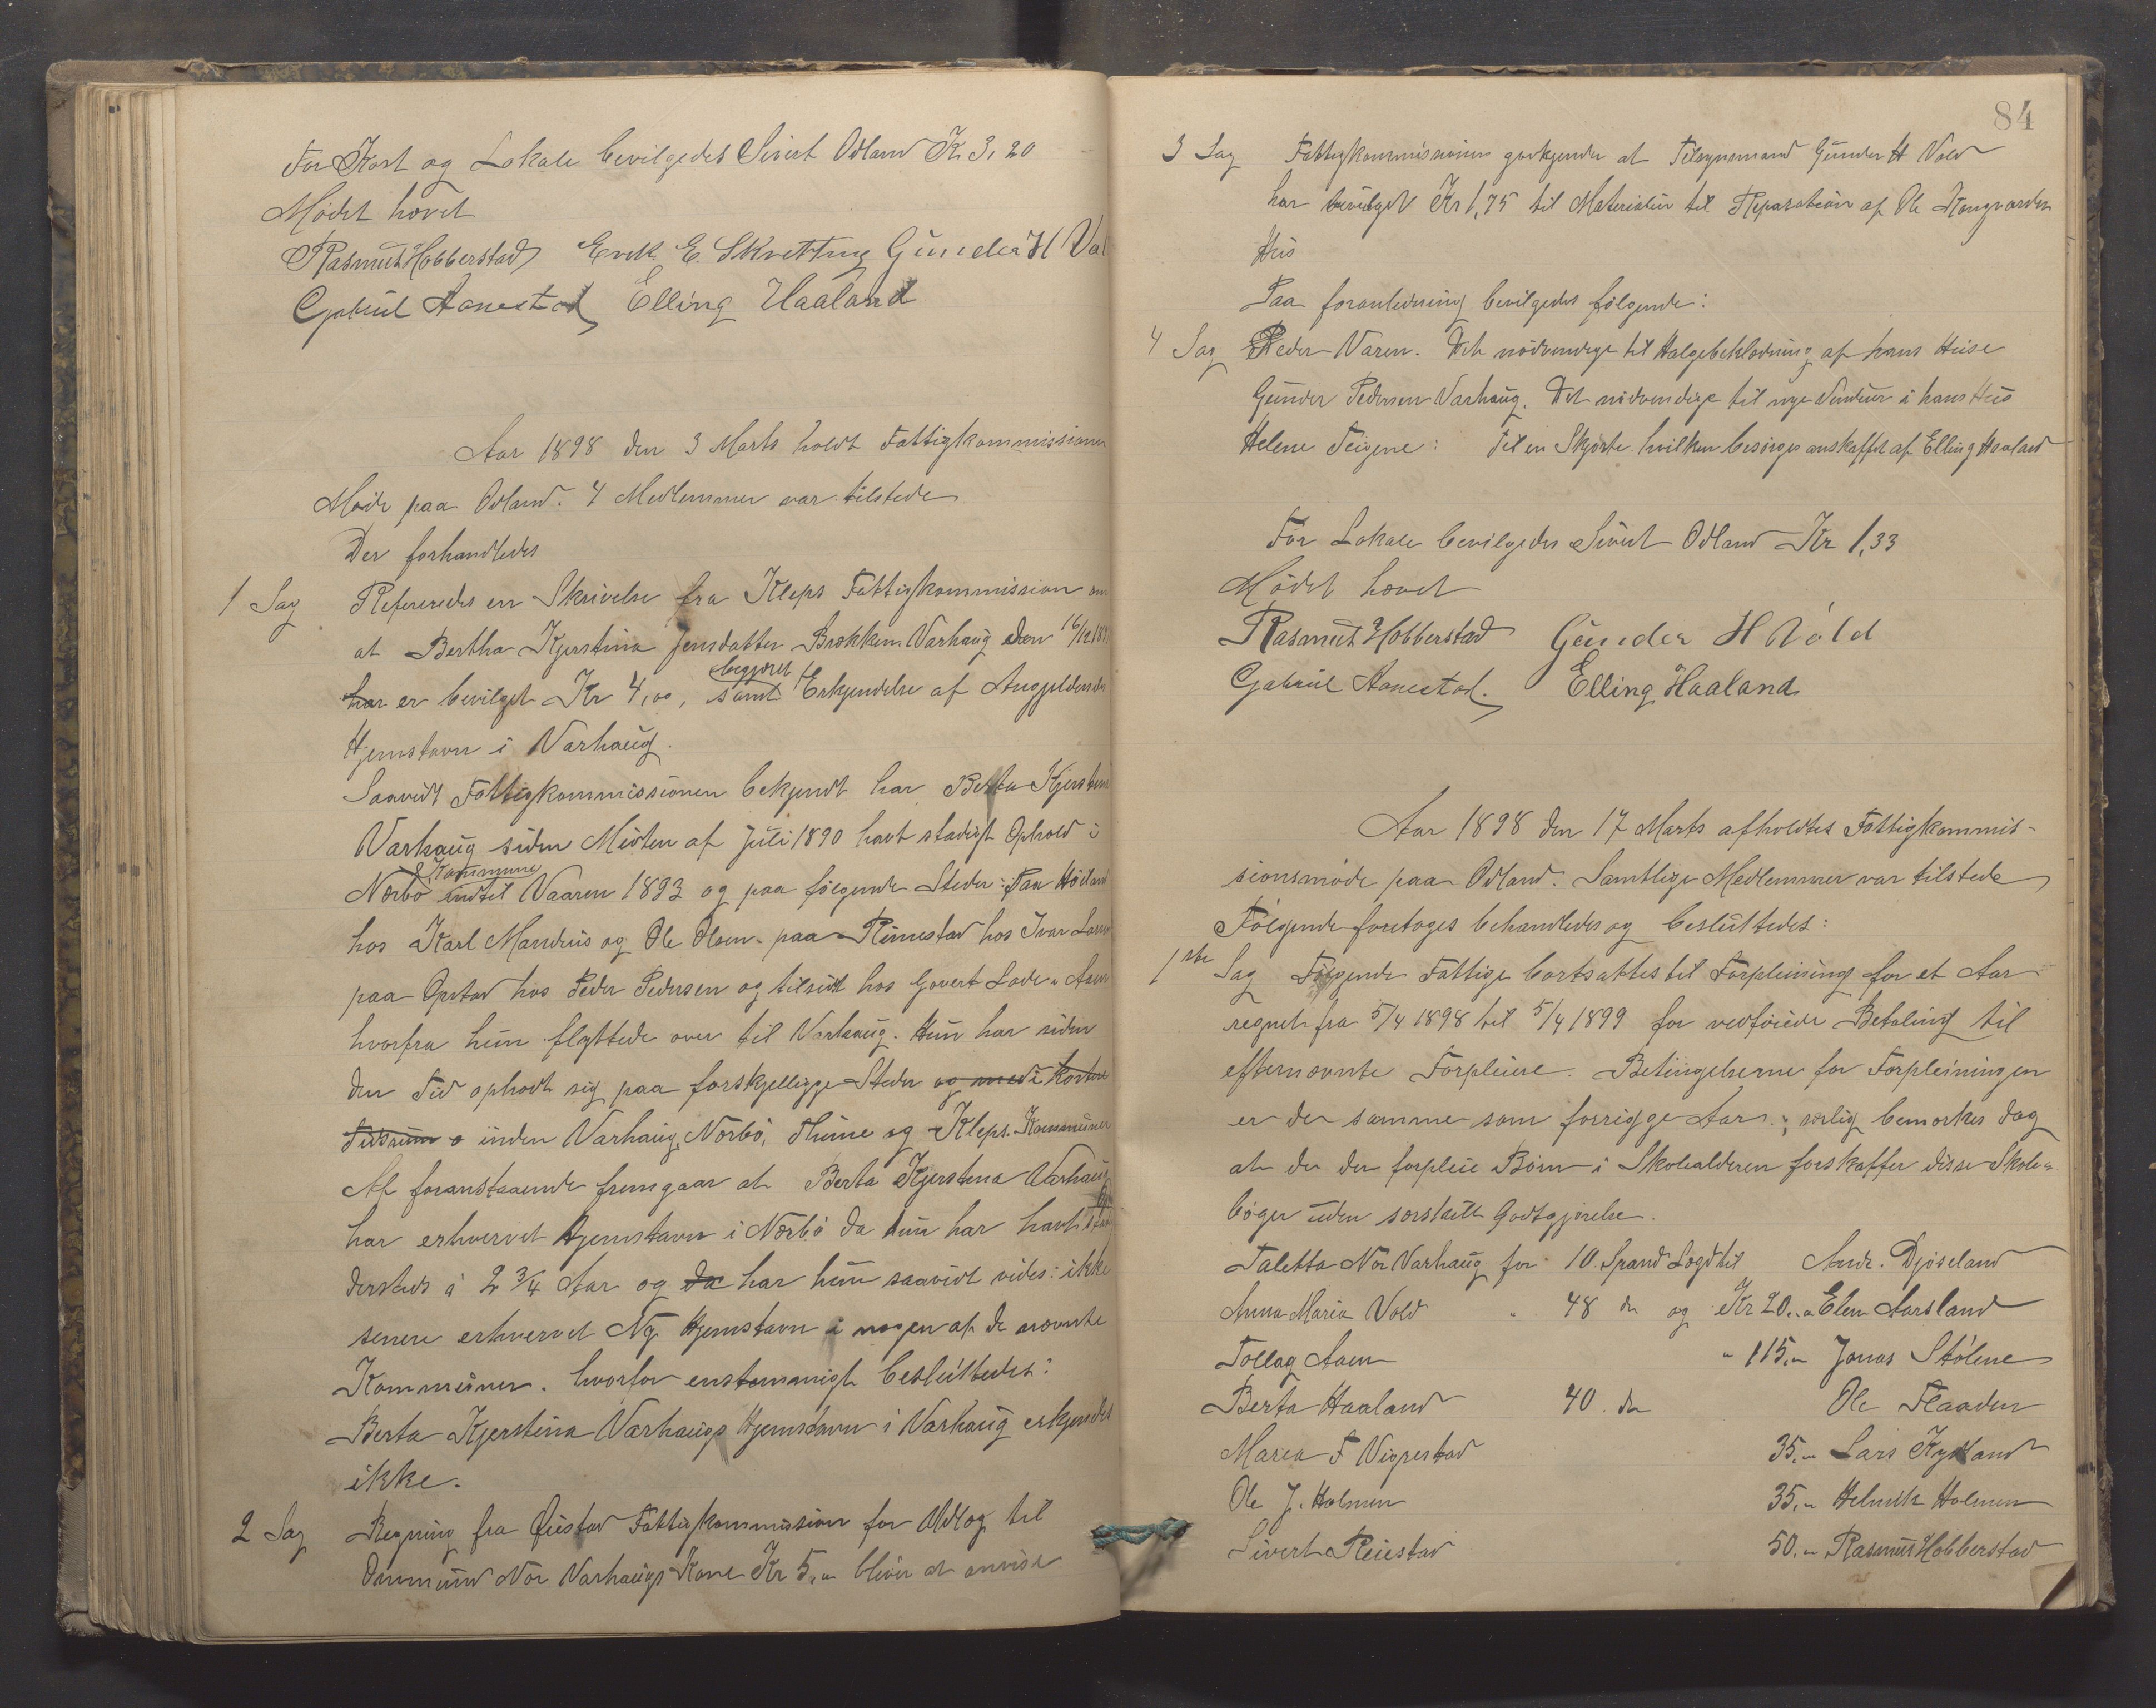 For Kost og Lokale bevilgedes Sivert Odland Kr 3,20
Mødet hævet
Rasmus Hobberstad Erik E. Skretting Gunder H Vol
Gabriel Aanestad Elling Haaland
Aar 1898 den 3 Marts holdt Fattigkommissionen
Møde paa Odland. 4 Medlemmer var tilstede
Der forhandledes
1 Sag Refereredes en Skrivelse fra Kleps Fattigkommission om
at Bertha Kjerstina Jensdatter Brækken Varhaug den 16/12 189
har er bevilget Kr 4,00, samt begjæret Erkjendelse af Angjældendes
Hjemstavn i Varhaug.
Saavidt Fattigkommissionen bekjendt har Berta Kjerstina
Varhaug siden Midten af Juli 1890 havt stadigt Ophold i
Nærbø Kommune indtil Vaaren 1893 og paa følgende Steder: Paa Høiland
hos Karl Mandius og Ole Olsen. paa Rimestad hos Ivar Larsen
paa Opstad hos Peder Pedersen og tilsidst hos Govert Lode
hvorfra hun flyttede over til Varhaug. Hun har siden
den Tid opholdt sig paa forskjellige Steder og med kortere
Tidsrum inden Varhaug, Nærbø, Thime og Kleps. Kommuner
Af foranstaaende fremgaar at Berta Kjerstina Varhaug
har erhvervet Hjemstavn i Nærbø da hun har havt
dersteds i 2 3/4 Aar og da har hun saavidt vides: ikke
senere erhvervet Ny Hjemstavn i nogen af de nævnte
Kommuner. hvorfor enstemmigt besluttedes:
Berta Kjerstina Varhaugs Hjemstavn i Varhaug erkjendes
ikke.
2 Sag Regning fra Øiestad Fattigkommission for Udlæg til
Ommund Nør Varhaugs Kone Kr 5,00 bliver at anvise
84
3 Sag Fattigkommissionen godkjender at Tilsynsmand Gunder H Vold
har bevilget Kr 1,75 til Materialier til Reparation af Ole Kongvarden
Hus
Paa foranledning bevilgedes følgende:
4 Sag Peder Varen. Det nødvendige til Halgebeklædning af hans Huse
Gunder Pedersen Varhaug. Det nødvendige til nye Vinduer i hans Hus
Helene Teigene: Til en Skjørte hvilken besørges anskaffet af Elling Haaland
For Lokale bevilgedes Sivert Odland Kr 1,33
Mødet hævet
Rasmus Hobberstad Gunder H Vold
Gabriel Aanestad. Elling Haaland
Aar 1898 den 17 Marts afholdtes Fattigkommis-
sionsmøde paa Odland. Samtlige Medlemmer var tilstede
Følgende foretoges behandledes og besluttedes:
1ste Sag Følgende Fattige bortsattes til Forpleining for et Aar
regnet fra 5/4 1898 til 5/4 1899 for vedføiede Betaling til
efternævnte Forpleiere. Betingelserne for Forpleiningen
er de samme som forrigge Aar; særlig bemærkes dog
at de der forpleie Børn i Skolealderen forskaffer disse Skole-
bøger uden særskilt Godtgjørelse.
Taletta Nør Varhaug for 10 Spand Lægd til Andr. Djøseland
Anna Maria Vold " 48 do og Kr 20.00 Elen Aarsland
Tollag Aaen " 115,00 Jonas Stølene
Berta Haaland 40 do Ole Flaaden
Maria F Vigrestad 35,00 Lars Kydland
Ole J. Holmen 35,00 Helmik Holmen
Sivert Reiestad 50,00 Rasmus Hobberstad